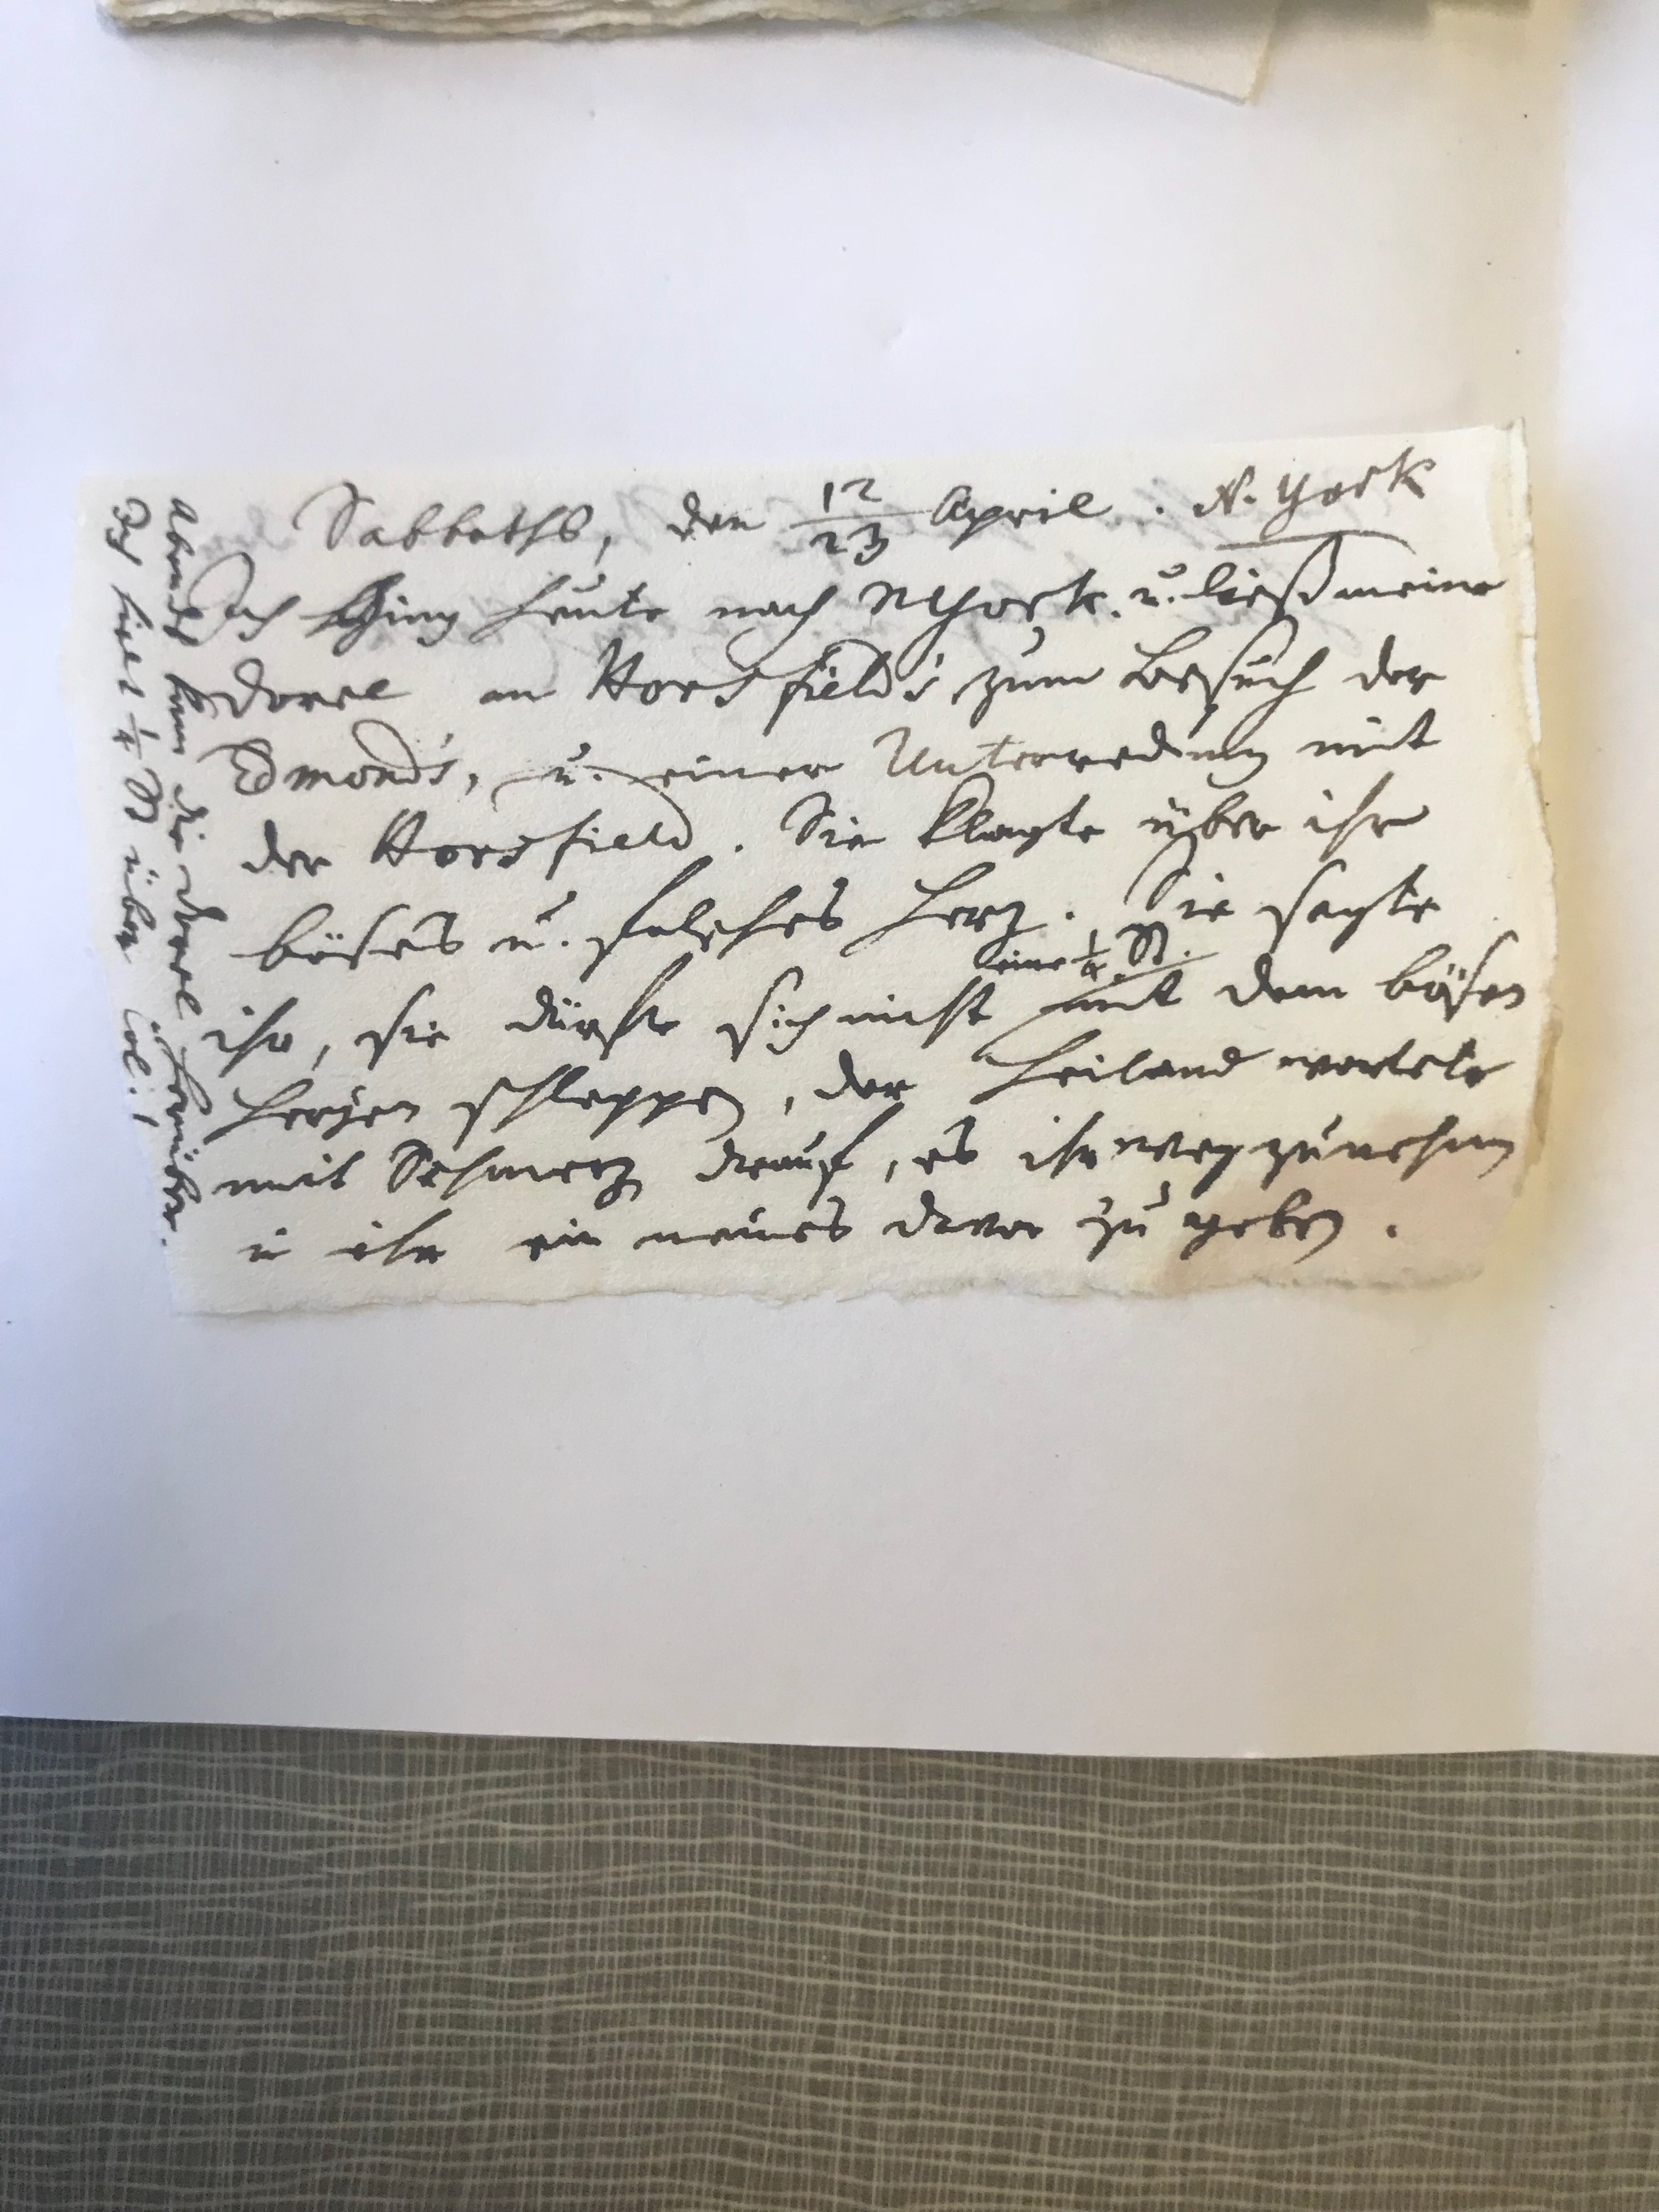 Sabbaths, den 12/23 April. N. York
Ich ging heute nach NYork. u. ließ meine
Dorel an Horsfield's zum Besuch der
Edmond's, u. einer Unterredung mit
der Horsfield. Sie klagte über ihr
böses u. falsches Herz. Sie sagte
ihr, sie dürfte sich nicht eine 1/4 St. mit dem bösen
Herzen schleppen, der Heiland wartete
mit Schmerz drauf, es ihr wegzunehmen
u ihr ein neues davor zu geben.
Abends kam die Dorel herüber.
Ich hielt 1/4 St über Col: 1